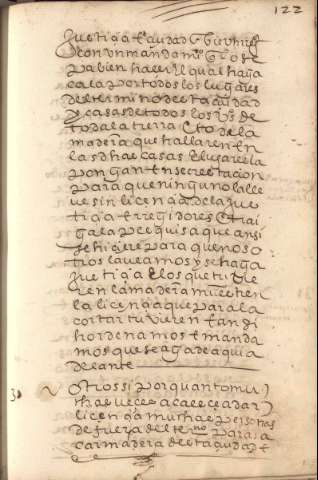 122
con un mandamiº
pa bien hacer el qual haga
cala por todos los lugares
del termino desta ciudad
y casas de todos los vºs de
toda la tierra e to de la
madera que hallaren en
las dhas casas e lugares la
pongan en secrestacion
para que ninguno la lle
ve sin licençia de la jus
tiçia e rregidores e trai
ga la pesquisa que ansi
se hiçiere para que noso
tros la veamos y se haga
justiçia e los que tuvie
ren la madera muestren
la liçençia que para la
cortar tuvieren e ansi
hordenamos e manda
mos que se aga de aqui a
delante
Otrossi por quanto mu
chas veces acaeçe a dar
liçençia a muchas personas
de fuera del terº para sa
car madera desta çiudad e